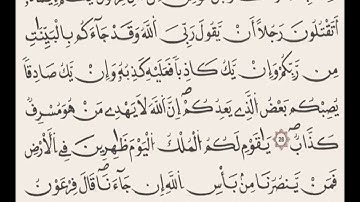 أَتَقْتُلُونَ رَجُلًا أَن يَقُولَ رَبِّيَ ٱللَّهُ وَقَدْ جَآءَكُم بِٱلْبَيِّنَٰتِ
مِن رَّبِّكُمْ وَإِن يَكُ كَٰذِبًا فَعَلَيْهِ كَذِبُهُۥ وَإِن يَكُ صَادِقًا
يُصِبْكُم بَعْضُ ٱلَّذِى يَعِدُكُمْ إِنَّ ٱللَّهَ لَا يَهْدِى مَنْ هُوَ مُسْرِفٌ
كَذَّابٌ 28 يَٰقَوْمِ لَكُمُ ٱلْمُلْكُ ٱلْيَوْمَ ظَٰهِرِينَ فِى ٱلْأَرْضِ
فَمَن يَنصُرُنَا مِنۢ بَأْسِ ٱللَّهِ إِن جَآءَنَا قَالَ فِرْعَوْنُ